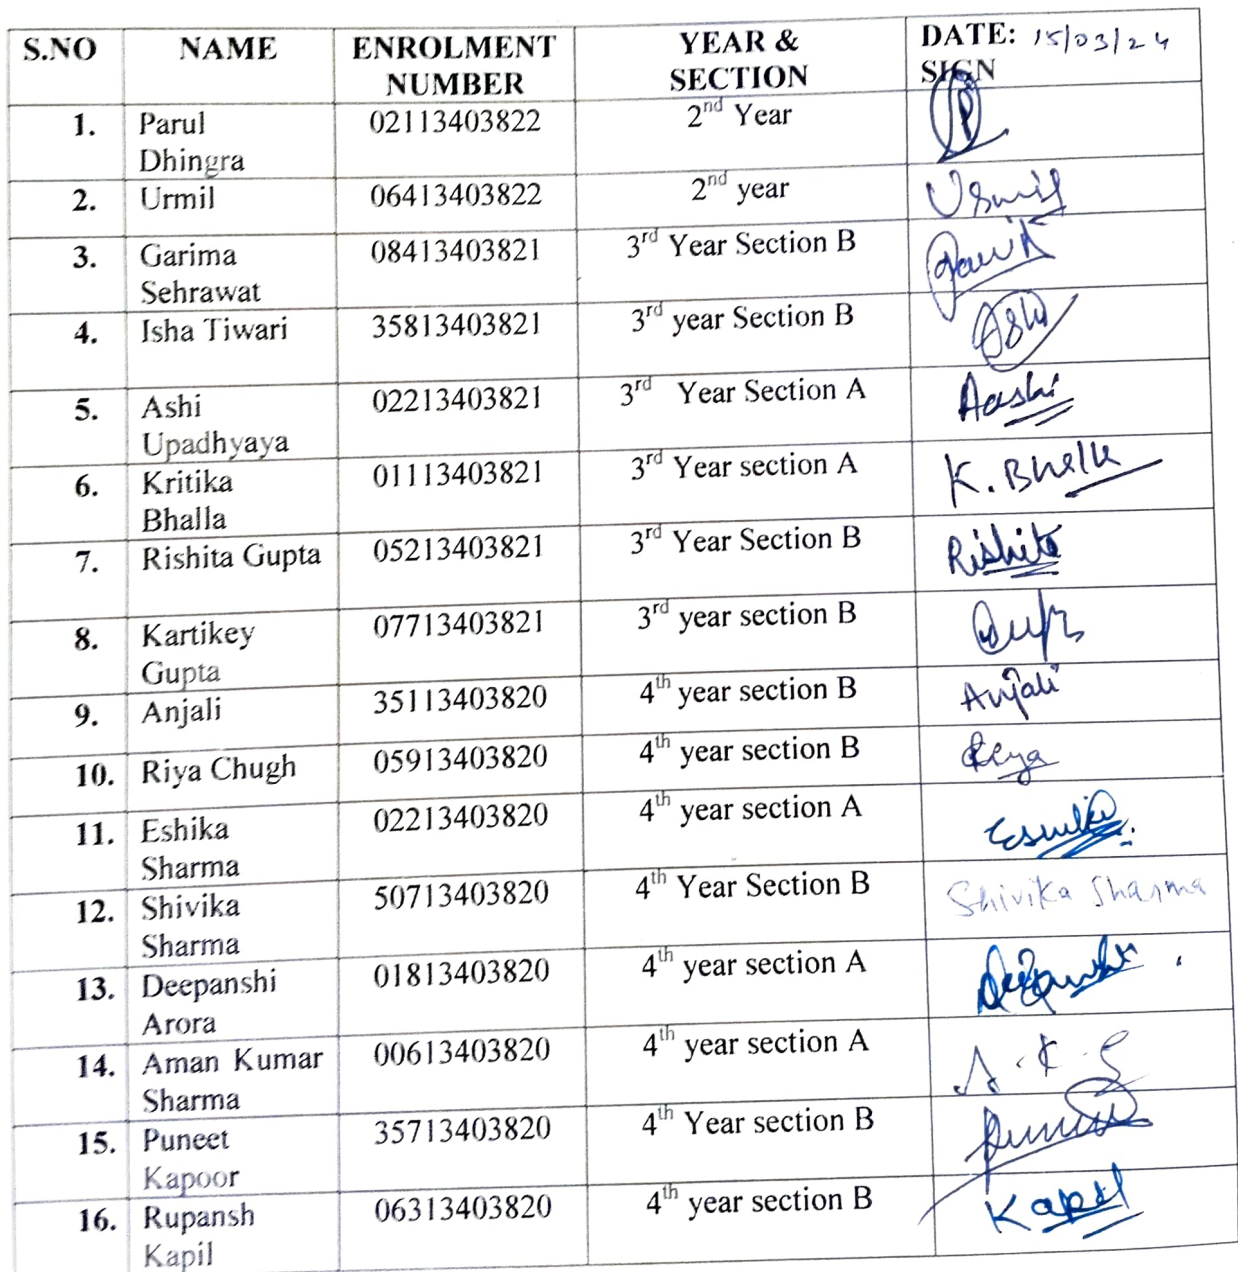 S.NO NAME ENROLMENT NUMBER YEAR & SECTION DATE: 15/03/24 SIGN
1. Parul Dhingra 02113403822 2nd Year
2. Urmil 06413403822 2nd year Urmil
3. Garima Sehrawat 08413403821 3rd Year Section B
4. Isha Tiwari 35813403821 3rd year Section B
5. Ashi Upadhyaya 02213403821 3rd Year Section A Aashi
6. Kritika Bhalla 01113403821 3rd Year section A K. Bhalla
7. Rishita Gupta 05213403821 3rd Year Section B Rishita
8. Kartikey Gupta 07713403821 3rd year section B
9. Anjali 35113403820 4th year section B Anjali
10. Riya Chugh 05913403820 4th year section B Riya
11. Eshika Sharma 02213403820 4th year section A
12. Shivika Sharma 50713403820 4th Year Section B Shivika Sharma
13. Deepanshi Arora 01813403820 4th year section A
14. Aman Kumar Sharma 00613403820 4th year section A A.K.S
15. Puneet Kapoor 35713403820 4th Year section B
16. Rupansh Kapil 06313403820 4th year section B Kapil